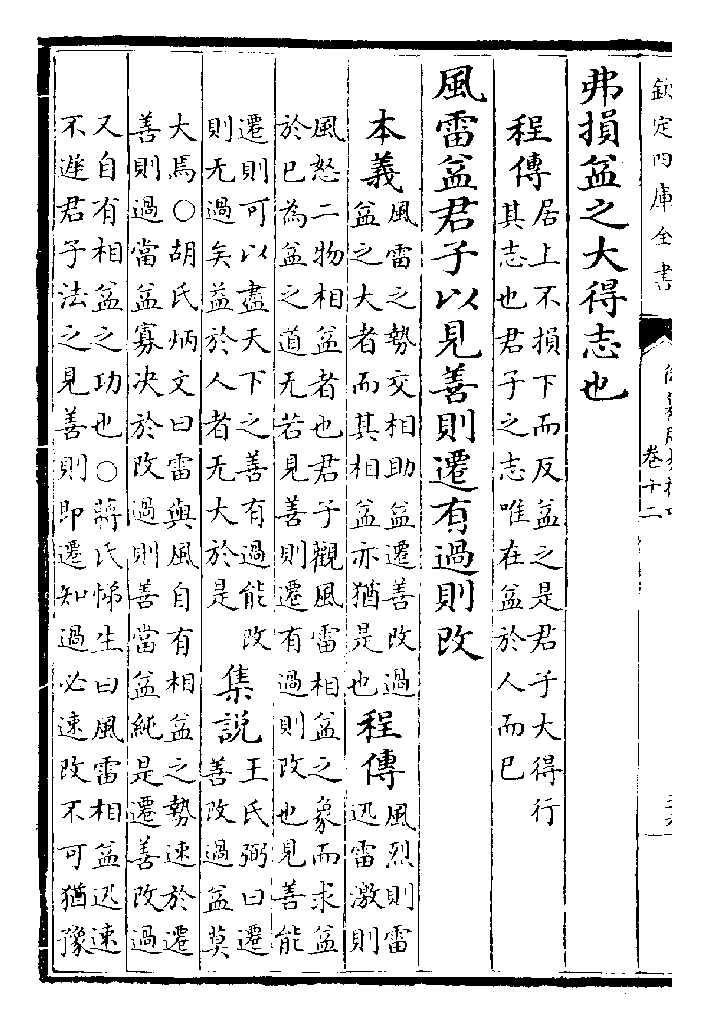 欽定四庫全書
卷十二
弗損益之大得志也
程傳
居上不損下而反益之是君子大得行
其志也君子之志唯在益於人而已
風雷益君子以見善則遷有過則改
本義
風雷之勢交相助益遷善改過
益之大者而其相益亦猶是也
程傳
風烈則雷
迅雷激則
風怒二物相益者也君子觀風雷相益之象而求益
於已為益之道无若見善則遷有過則改也見善能
遷則可以盡天下之善有過能改
則无過矣益於人者无大於是
集説
王氏弼曰遷
善改過益莫
大焉○胡氏炳文曰雷與風自有相益之勢速於遷
善則過當益寡决於改過則善當益純是遷善改過
又自有相益之功也○蔣氏悌生曰風雷相益迅速
不遲君子法之見善則即遷知過必速改不可猶豫